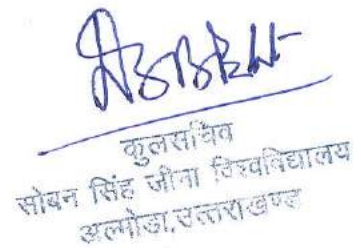 कुलसचिव
सोबन सिंह जीना विश्वविद्यालय
अल्मोडा, उत्तराखण्ड